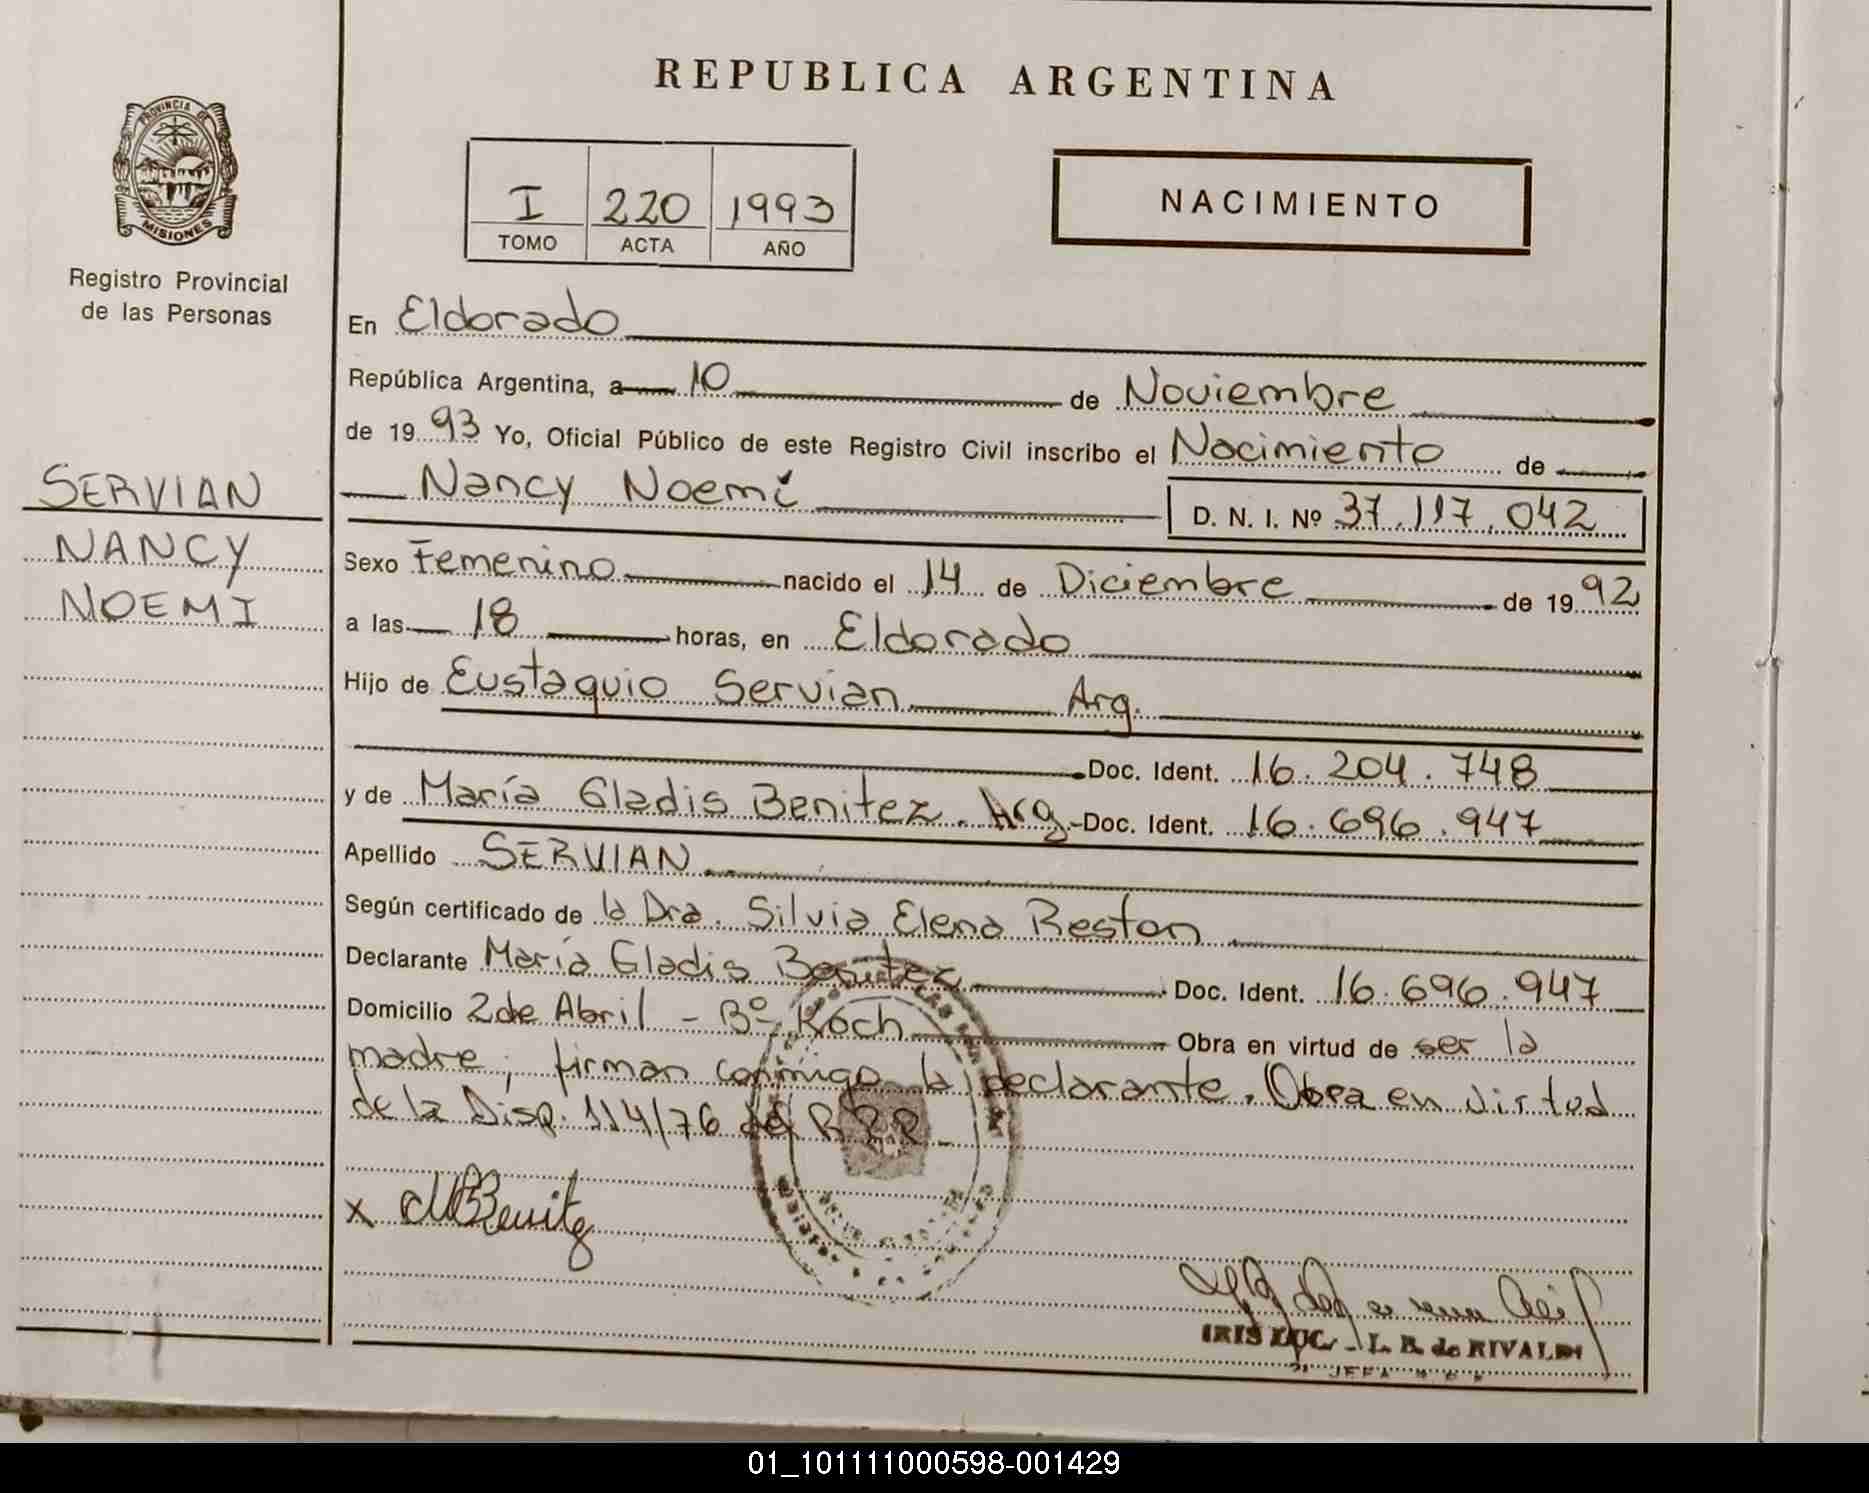 REPUBLICA ARGENTINA
PROVINCIA DE
MISIONES
Registro Provincial
de las Personas
I 220 1993
TOMO ACTA AÑO
NACIMIENTO
SERVIAN
NANCY
NOEMI
En Eldorado
República Argentina, a 10 de Noviembre
de 19 93 Yo, Oficial Público de este Registro Civil inscribo el Nacimiento de
Nancy Noemí D. N. I. Nº 37.117.042
Sexo Femenino nacido el 14 de Diciembre de 19 92
a las 18 horas, en Eldorado
Hijo de Eustaquio Servian Arg.
Doc. Ident. 16.204.748
y de María Gladis Benitez. Arg.- Doc. Ident. 16.696.947
Apellido SERVIAN
Según certificado de la Dra. Silvia Elena Reston
Declarante María Gladis Benitez Doc. Ident. 16.696.947
Domicilio 2 de Abril - Bº Koch Obra en virtud de ser la
madre, firman conmigo la declarante. Obra en virtud
de la Disp. 114/76 R.P.P.
x Benitez
IRIS LUC. L. B. de RIVALDI
JEFA
01_101111000598-001429